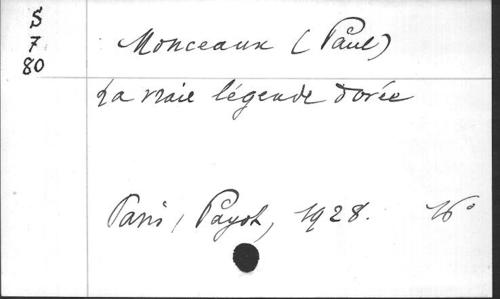 S
7
80
Monceaux (Paul)
La vraie légende dorée
Paris, Payot, 1928. 16°